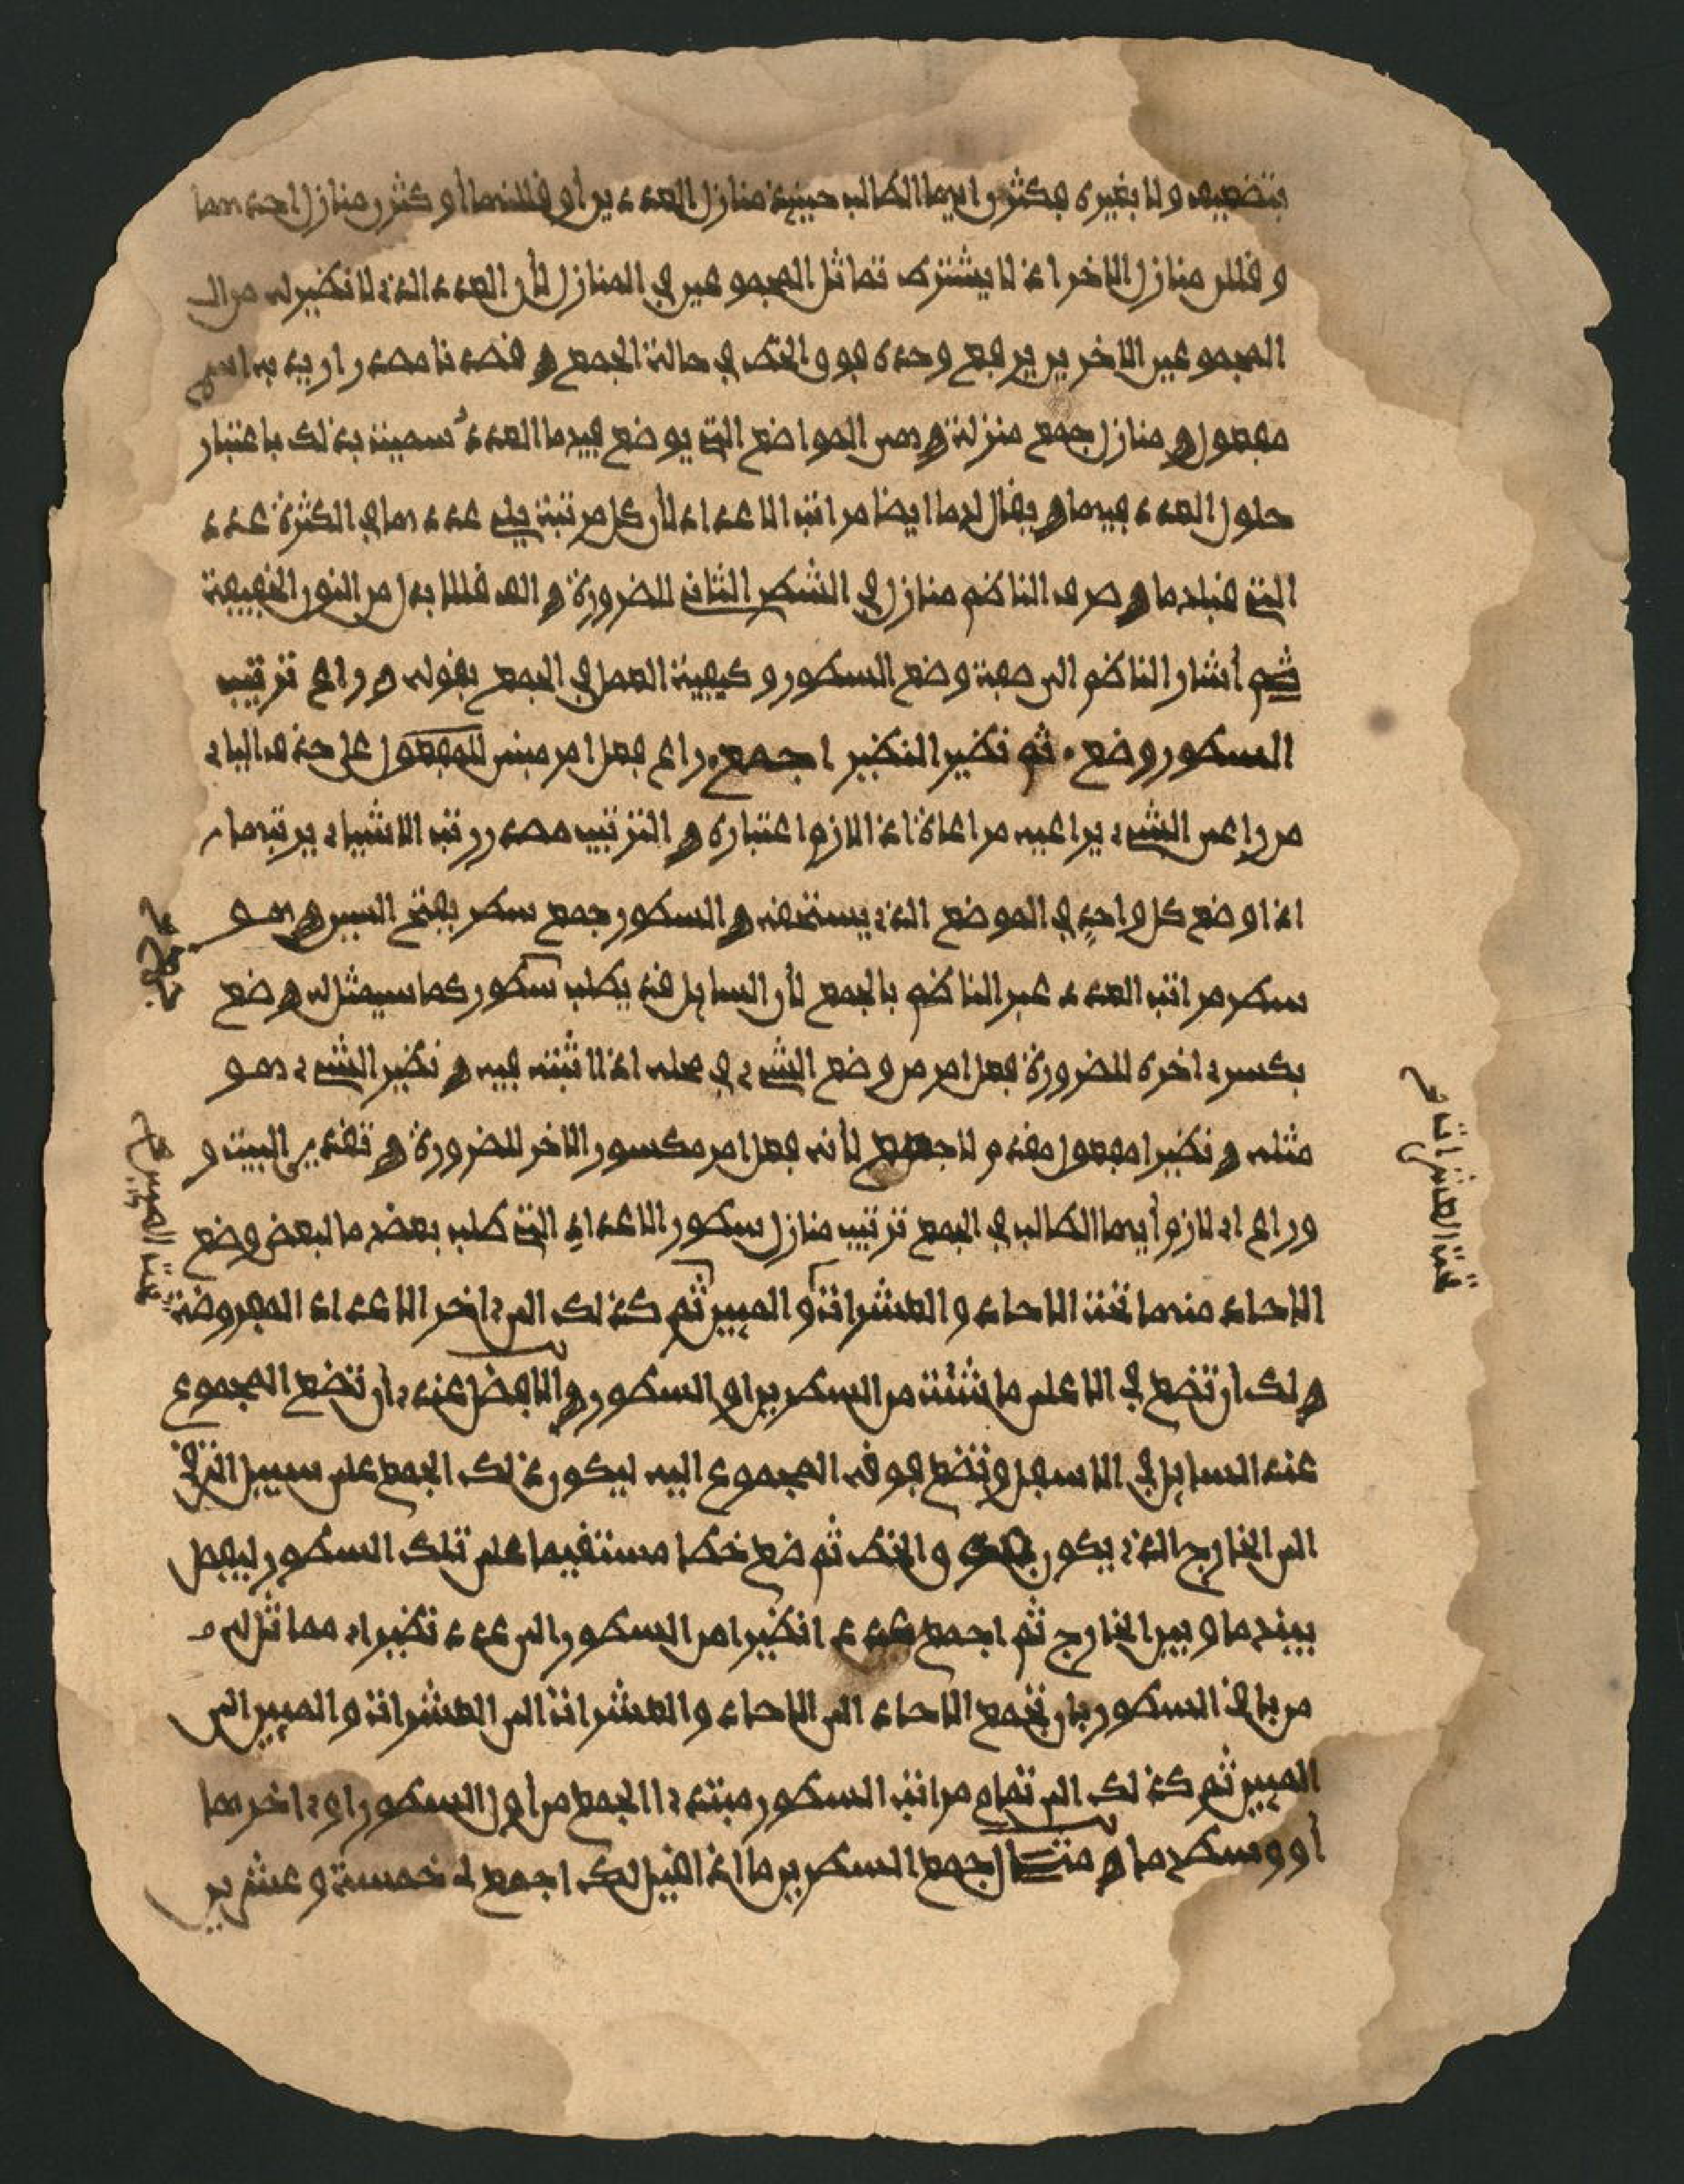 بتضعيف ولا بغيره فكثرن ايها الطالب حينئذ منازل العددين أو قللنها أو كثرن منازل احدهما
و قللن منازل الاخر اذ لا يشترط تماثل المجموعين في المنازل لأن العدد الذي لا نظير له من
المجموعين الاخرين يرفع وحده فوق الخط في حالة الجمع وقصدنا مصدر اريد به اسم
مفعول ومنازل جمع منزلة وهي المواضع التي يوضع فيها العدد سميت بذلك باعتبار
حلول العدد فيها ويقال لها ايضا مراتب الاعداد لأن كل مرتبة يلي عددها في الكثرة عدد
التي قبلها وصرف الناظم منازل في الشطر الثاني للضرورة والف قللا بدل من النون الخفيفة
ثم أشار الناظم الى صفة وضع السطور و كيفية العمل في الجمع بقوله وراع ترتيب
السطور وضع ٠ ثم نظير النظير اجمع ٠ راع فعل امر مبني للمفعول على حذف الياء
من راعى الشيء يراعيه مراعاة اذا لازم اعتباره والترتيب مصدر رتب الاشياء يرتبها
اذا وضع كل واحد في الموضع الذي يستحقه والسطور جمع سطر بفتح السين وهو
سطر مراتب العدد عبر الناظم بالجمع لأن السايل قد يطلب سطور كما سيمثل له وضع
بكسر ءاخره للضرورة فعل امر من وضع الشيء في محله اذا اثبته فيه ونظير الشيء هو
مثله ونظيرا مفعول مقدم لاجمع لأنه فعل امر مكسور الاخر للضرورة وتقدير البيت و
وراع اي لازم أيها الطالب في الجمع ترتيب منازل سطور الاعداد التي طلب بعضها لبعض وضع
الاحاد منها تحت الاحاد و العشرات و الميين ثم كذلك الى ءاخر الاعداد المفروضة
ولك ان تضع في الاعلى ما شئت من السطرين او السطور والافضل عندي أن تضع المجموع
عند السايل في الاسفل وتضع فوقه المجموع اليه ليكون ذلك الجمع على سبيل الترقي
الى الخارج الذي يكون فوق الخط ثم ضع خطا مستقيما على تلك السطور ليفصل
بينها و بين الخارج ثم اجمع عدد انظيرا من السطور الى عدد نظيرا اي مماثل له
من باقي السطور بان تجمع الاحاد الى الاحاد والعشرات الى العشرات و الميين الى
الميين ثم كذلك الى تمام مراتب السطور مبتدءا الجمع من أول السطور او ءاخرها
أو وسطها و مثال جمع السطرين ما اذا قيل لك اجمع لـ خمسة و عشرين
تحت العشرات
تحت الميين